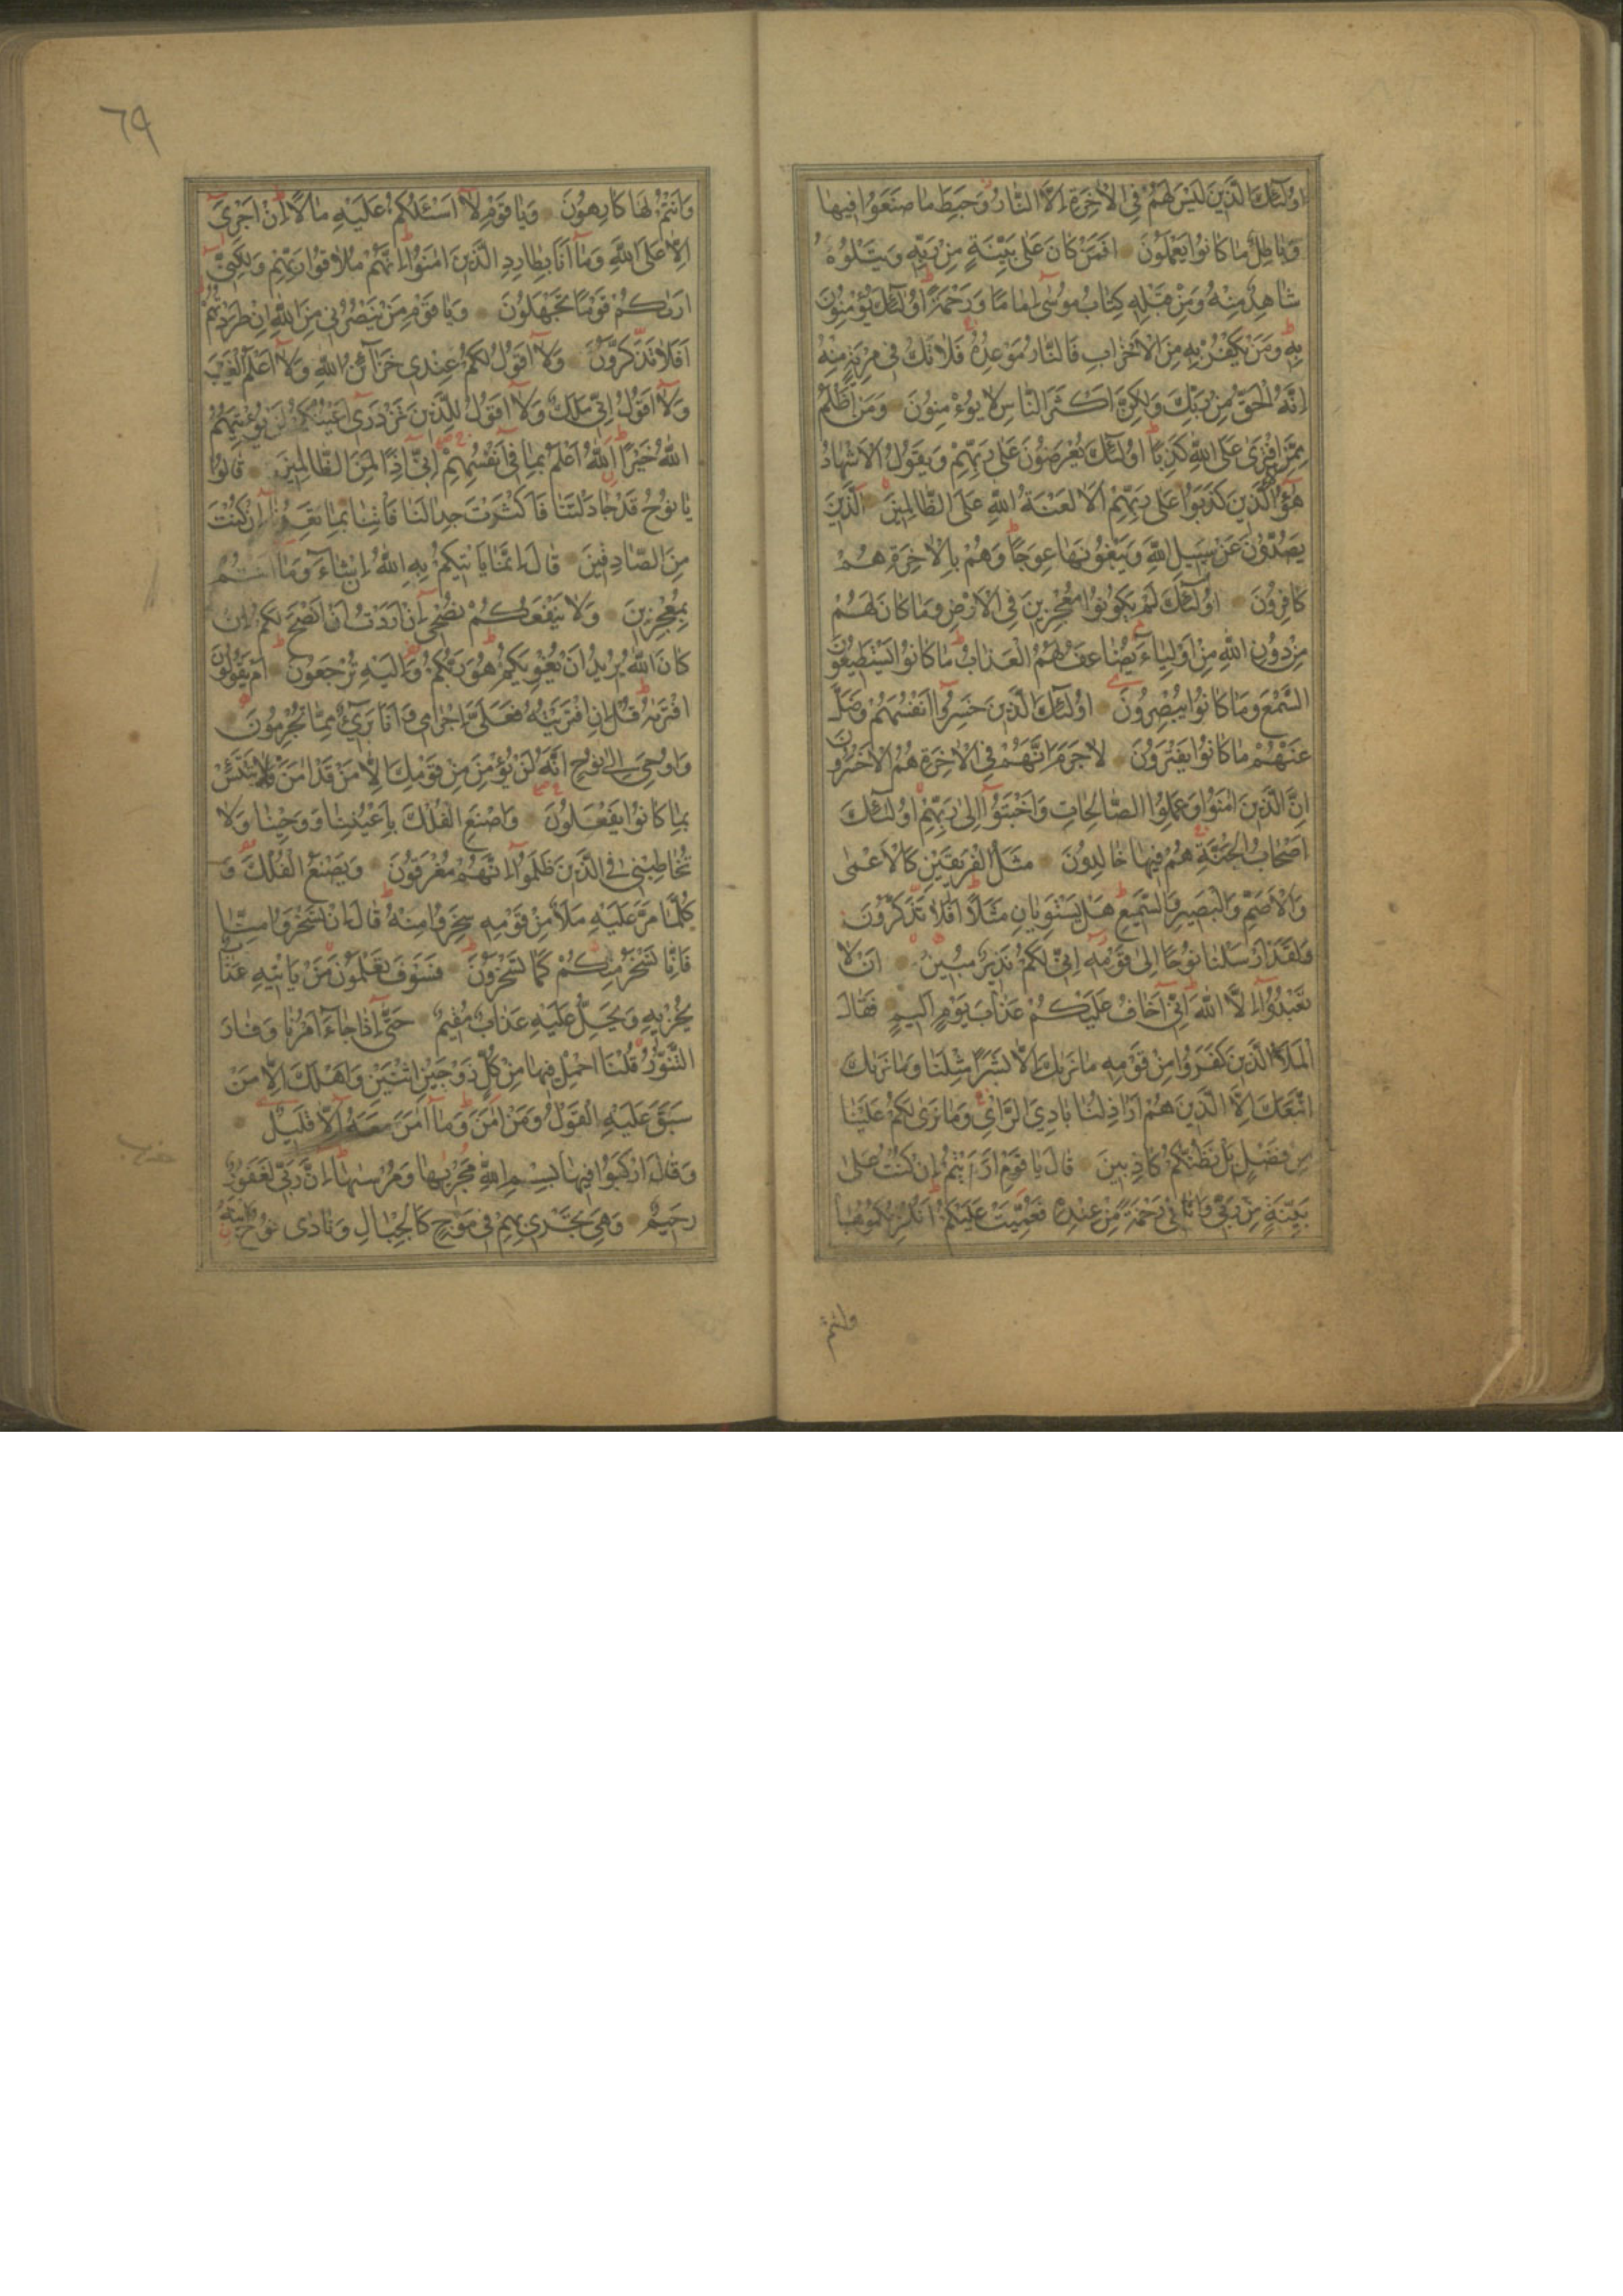 اُولٰئِكَ الَّذِينَ لَيْسَ لَهُمْ فِي الْاٰخِرَةِ اِلَّا النَّارُ وَحَبِطَ مَا صَنَعُوا فِيهَا
وَبَاطِلٌ مَا كَانُوا يَعْمَلُونَ اَفَمَنْ كَانَ عَلٰى بَيِّنَةٍ مِنْ رَبِّهِ وَيَتْلُوهُ
شَاهِدٌ مِنْهُ وَمِنْ قَبْلِهِ كِتَابُ مُوسٰى اِمَامًا وَرَحْمَةً اُولٰئِكَ يُؤْمِنُونَ
بِهِ وَمَنْ يَكْفُرْ بِهِ مِنَ الْاَحْزَابِ فَالنَّارُ مَوْعِدُهُ فَلَا تَكُ فِي مِرْيَةٍ مِنْهُ
اِنَّهُ الْحَقُّ مِنْ رَبِّكَ وَلٰكِنَّ اَكْثَرَ النَّاسِ لَا يُؤْمِنُونَ وَمَنْ اَظْلَمُ
مِمَّنِ افْتَرٰى عَلَى اللّٰهِ كَذِبًا اُولٰئِكَ يُعْرَضُونَ عَلٰى رَبِّهِمْ وَيَقُولُ الْاَشْهَادُ
هٰؤُلَاءِ الَّذِينَ كَذَبُوا عَلٰى رَبِّهِمْ اَلَا لَعْنَةُ اللّٰهِ عَلَى الظَّالِمِينَ اَلَّذِينَ
يَصُدُّونَ عَنْ سَبِيلِ اللّٰهِ وَيَبْغُونَهَا عِوَجًا وَهُمْ بِالْاٰخِرَةِ هُمْ
كَافِرُونَ اُولٰئِكَ لَمْ يَكُونُوا مُعْجِزِينَ فِي الْاَرْضِ وَمَا كَانَ لَهُمْ
مِنْ دُونِ اللّٰهِ مِنْ اَوْلِيَاءَ يُضَاعَفُ لَهُمُ الْعَذَابُ مَا كَانُوا يَسْتَطِيعُونَ
السَّمْعَ وَمَا كَانُوا يُبْصِرُونَ اُولٰئِكَ الَّذِينَ خَسِرُوا اَنْفُسَهُمْ وَضَلَّ
عَنْهُمْ مَا كَانُوا يَفْتَرُونَ لَا جَرَمَ اَنَّهُمْ فِي الْاٰخِرَةِ هُمُ الْاَخْسَرُونَ
اِنَّ الَّذِينَ اٰمَنُوا وَعَمِلُوا الصَّالِحَاتِ وَاَخْبَتُوا اِلٰى رَبِّهِمْ اُولٰئِكَ
اَصْحَابُ الْجَنَّةِ هُمْ فِيهَا خَالِدُونَ مَثَلُ الْفَرِيقَيْنِ كَالْاَعْمٰى
وَالْاَصَمِّ وَالْبَصِيرِ وَالسَّمِيعِ هَلْ يَسْتَوِيَانِ مَثَلًا اَفَلَا تَذَكَّرُونَ
وَلَقَدْ اَرْسَلْنَا نُوحًا اِلٰى قَوْمِهِ اِنِّي لَكُمْ نَذِيرٌ مُبِينٌ اَنْ لَا
تَعْبُدُوا اِلَّا اللّٰهَ اِنِّي اَخَافُ عَلَيْكُمْ عَذَابَ يَوْمٍ اَلِيمٍ فَقَالَ
الْمَلَاُ الَّذِينَ كَفَرُوا مِنْ قَوْمِهِ مَا نَرٰيكَ اِلَّا بَشَرًا مِثْلَنَا وَمَا نَرٰيكَ
اتَّبَعَكَ اِلَّا الَّذِينَ هُمْ اَرَاذِلُنَا بَادِيَ الرَّاْيِ وَمَا نَرٰى لَكُمْ عَلَيْنَا
مِنْ فَضْلٍ بَلْ نَظُنُّكُمْ كَاذِبِينَ قَالَ يَا قَوْمِ اَرَاَيْتُمْ اِنْ كُنْتُ عَلٰى
بَيِّنَةٍ مِنْ رَبِّي وَاٰتَانِي رَحْمَةً مِنْ عِنْدِهِ فَعُمِّيَتْ عَلَيْكُمْ اَنُلْزِمُكُمُوهَا
وانتم
٦٩
وَاَنْتُمْ لَهَا كَارِهُونَ وَيَا قَوْمِ لَا اَسْئَلُكُمْ عَلَيْهِ مَالًا اِنْ اَجْرِيَ
اِلَّا عَلَى اللّٰهِ وَمَا اَنَا بِطَارِدِ الَّذِينَ اٰمَنُوا اِنَّهُمْ مُلَاقُوا رَبِّهِمْ وَلٰكِنِّي
اَرٰيكُمْ قَوْمًا تَجْهَلُونَ وَيَا قَوْمِ مَنْ يَنْصُرُنِي مِنَ اللّٰهِ اِنْ طَرَدْتُهُمْ
اَفَلَا تَذَكَّرُونَ وَلَا اَقُولُ لَكُمْ عِنْدِي خَزَائِنُ اللّٰهِ وَلَا اَعْلَمُ الْغَيْبَ
وَلَا اَقُولُ اِنِّي مَلَكٌ وَلَا اَقُولُ لِلَّذِينَ تَزْدَرِي اَعْيُنُكُمْ لَنْ يُؤْتِيَهُمُ
اللّٰهُ خَيْرًا اَللّٰهُ اَعْلَمُ بِمَا فِي اَنْفُسِهِمْ اِنِّي اِذًا لَمِنَ الظَّالِمِينَ قَالُوا
يَا نُوحُ قَدْ جَادَلْتَنَا فَاَكْثَرْتَ جِدَالَنَا فَاْتِنَا بِمَا تَعِدُنَا اِنْ كُنْتَ
مِنَ الصَّادِقِينَ قَالَ اِنَّمَا يَاْتِيكُمْ بِهِ اللّٰهُ اِنْ شَاءَ وَمَا اَنْتُمْ
بِمُعْجِزِينَ وَلَا يَنْفَعُكُمْ نُصْحِي اِنْ اَرَدْتُ اَنْ اَنْصَحَ لَكُمْ اِنْ
كَانَ اللّٰهُ يُرِيدُ اَنْ يُغْوِيَكُمْ هُوَ رَبُّكُمْ وَاِلَيْهِ تُرْجَعُونَ اَمْ يَقُولُونَ
افْتَرٰيهُ قُلْ اِنِ افْتَرَيْتُهُ فَعَلَيَّ اِجْرَامِي وَاَنَا بَرِيءٌ مِمَّا تُجْرِمُونَ
وَاُوحِيَ اِلٰى نُوحٍ اَنَّهُ لَنْ يُؤْمِنَ مِنْ قَوْمِكَ اِلَّا مَنْ قَدْ اٰمَنَ فَلَا تَبْتَئِسْ
بِمَا كَانُوا يَفْعَلُونَ وَاصْنَعِ الْفُلْكَ بِاَعْيُنِنَا وَوَحْيِنَا وَلَا
تُخَاطِبْنِي فِي الَّذِينَ ظَلَمُوا اِنَّهُمْ مُغْرَقُونَ وَيَصْنَعُ الْفُلْكَ وَ
كُلَّمَا مَرَّ عَلَيْهِ مَلَاٌ مِنْ قَوْمِهِ سَخِرُوا مِنْهُ قَالَ اِنْ تَسْخَرُوا مِنَّا
فَاِنَّا نَسْخَرُ مِنْكُمْ كَمَا تَسْخَرُونَ فَسَوْفَ تَعْلَمُونَ مَنْ يَاْتِيهِ عَذَابٌ
يُخْزِيهِ وَيَحِلُّ عَلَيْهِ عَذَابٌ مُقِيمٌ حَتّٰى اِذَا جَاءَ اَمْرُنَا وَفَارَ
التَّنُّورُ قُلْنَا احْمِلْ فِيهَا مِنْ كُلٍّ زَوْجَيْنِ اثْنَيْنِ وَاَهْلَكَ اِلَّا مَنْ
سَبَقَ عَلَيْهِ الْقَوْلُ وَمَنْ اٰمَنَ وَمَا اٰمَنَ مَعَهُ اِلَّا قَلِيلٌ
وَقَالَ ارْكَبُوا فِيهَا بِسْمِ اللّٰهِ مَجْرٰيهَا وَمُرْسٰيهَا اِنَّ رَبِّي لَغَفُورٌ
رَحِيمٌ وَهِيَ تَجْرِي بِهِمْ فِي مَوْجٍ كَالْجِبَالِ وَنَادٰى نُوحٌ ابْنَهُ